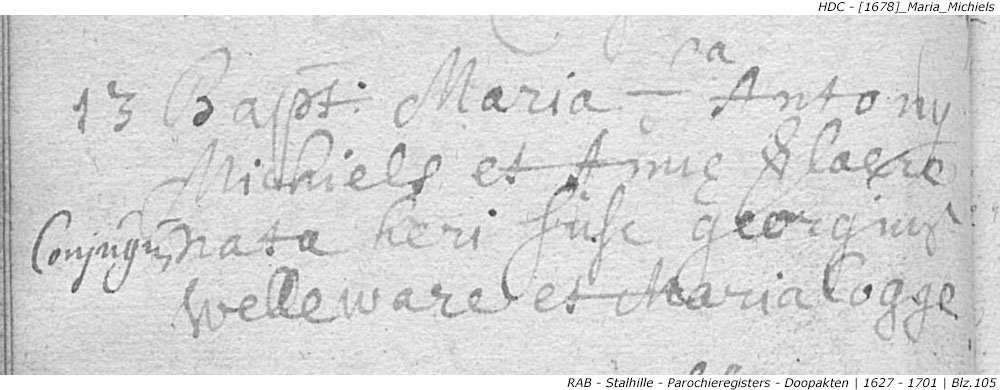 HDC - [1678]_Maria_Michiels
13 Bapt: Maria - fa Antony
Michiels et Annę Slaere
Conjugū nata heri susc georgius
Welleware et Maria Cogge
RAB - Stalhille - Parochieregisters - Doopakten | 1627 - 1701 | Blz.105